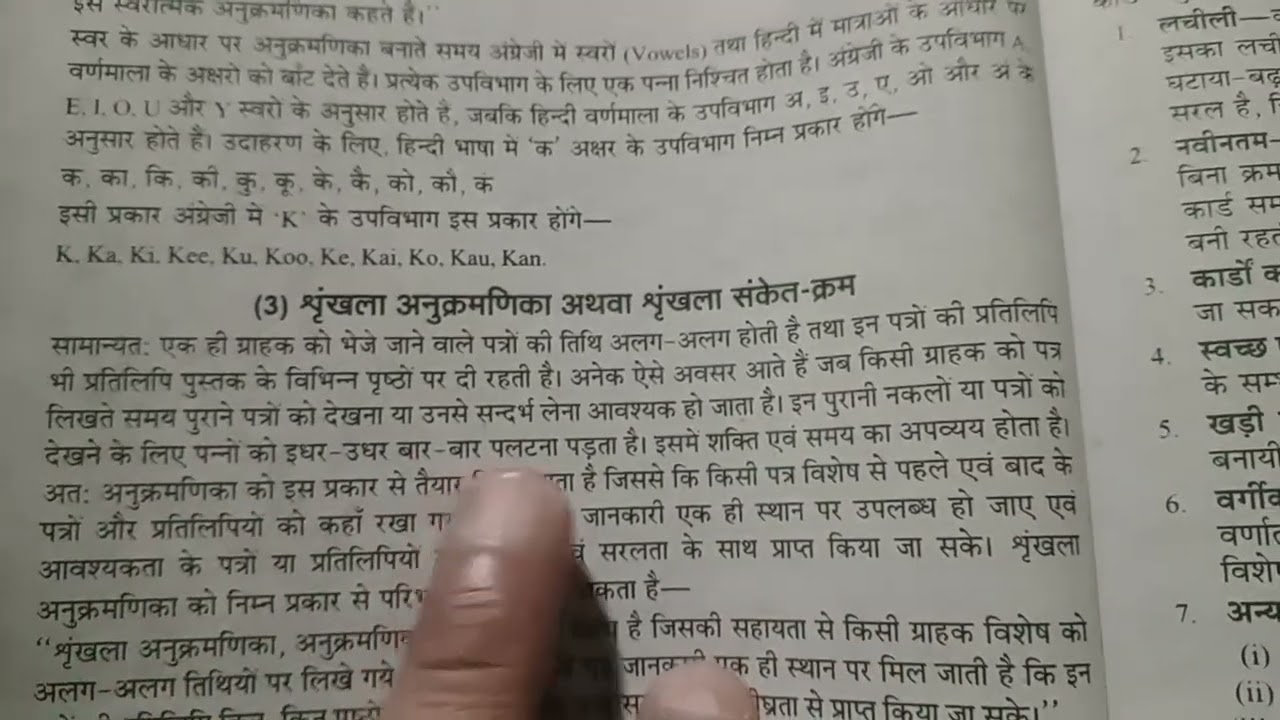 इसे स्वरात्मक अनुक्रमणिका कहते हैं।”
स्वर के आधार पर अनुक्रमणिका बनाते समय अंग्रेजी में स्वरों (Vowels) तथा हिन्दी में मात्राओं के आधार पर
वर्णमाला के अक्षरों को बाँट देते हैं। प्रत्येक उपविभाग के लिए एक पन्ना निश्चित होता है। अंग्रेजी के उपविभाग A,
E, I, O, U और Y स्वरों के अनुसार होते है, जबकि हिन्दी वर्णमाला के उपविभाग अ, इ, उ, ए, ओ और अं के
अनुसार होते है। उदाहरण के लिए, हिन्दी भाषा में ‘क’ अक्षर के उपविभाग निम्न प्रकार होंगे—
क, का, कि, की, कु, कू, के, कै, को, कौ, कं
इसी प्रकार अंग्रेजी में ‘K’ के उपविभाग इस प्रकार होंगे—
K, Ka, Ki, Kee, Ku, Koo, Ke, Kai, Ko, Kau, Kan.
(3) शृंखला अनुक्रमणिका अथवा शृंखला संकेत-क्रम
सामान्यत: एक ही ग्राहक को भेजे जाने वाले पत्रों की तिथि अलग-अलग होती है तथा इन पत्रों की प्रतिलिपि
भी प्रतिलिपि पुस्तक के विभिन्न पृष्ठों पर दी रहती है। अनेक ऐसे अवसर आते हैं जब किसी ग्राहक को पत्र
लिखते समय पुराने पत्रों को देखना या उनसे सन्दर्भ लेना आवश्यक हो जाता है। इन पुरानी नकलों या पत्रों को
देखने के लिए पन्नों को इधर-उधर बार-बार पलटना पड़ता है। इसमें शक्ति एवं समय का अपव्यय होता है।
अत: अनुक्रमणिका को इस प्रकार से तैयार है जिससे कि किसी पत्र विशेष से पहले एवं बाद के
पत्रों और प्रतिलिपियों को कहाँ रखा जानकारी एक ही स्थान पर उपलब्ध हो जाए एवं
आवश्यकता के पत्रों या प्रतिलिपियों सरलता के साथ प्राप्त किया जा सके। शृंखला
अनुक्रमणिका को निम्न प्रकार से है—
“शृंखला अनुक्रमणिका, है जिसकी सहायता से किसी ग्राहक विशेष को
अलग-अलग तिथियों पर लिखे गये जानकारी एक ही स्थान पर मिल जाती है कि इन
से प्राप्त किया जा सके।”
1. लचीली—
इसका
घटाया-
सरल है,
2. नवीनतम-
बिना क्रम
कार्ड
बनी
3. कार्डों
जा
4. स्वच्छ
के
5. खड़ी
6.
7.
(i)
(ii)